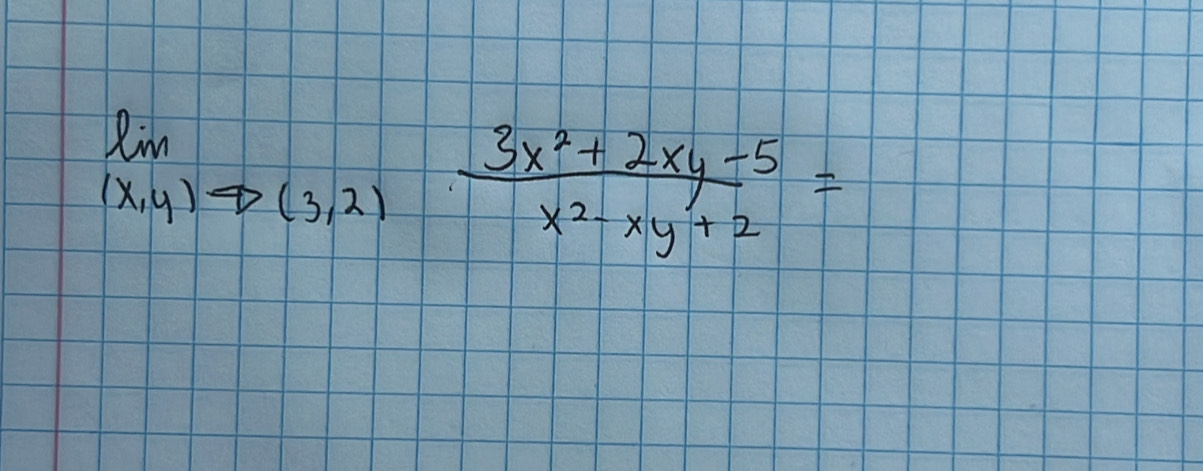 lim (x,y) → (3,2) 3x² + 2xy - 5 / x² - xy + 2 =